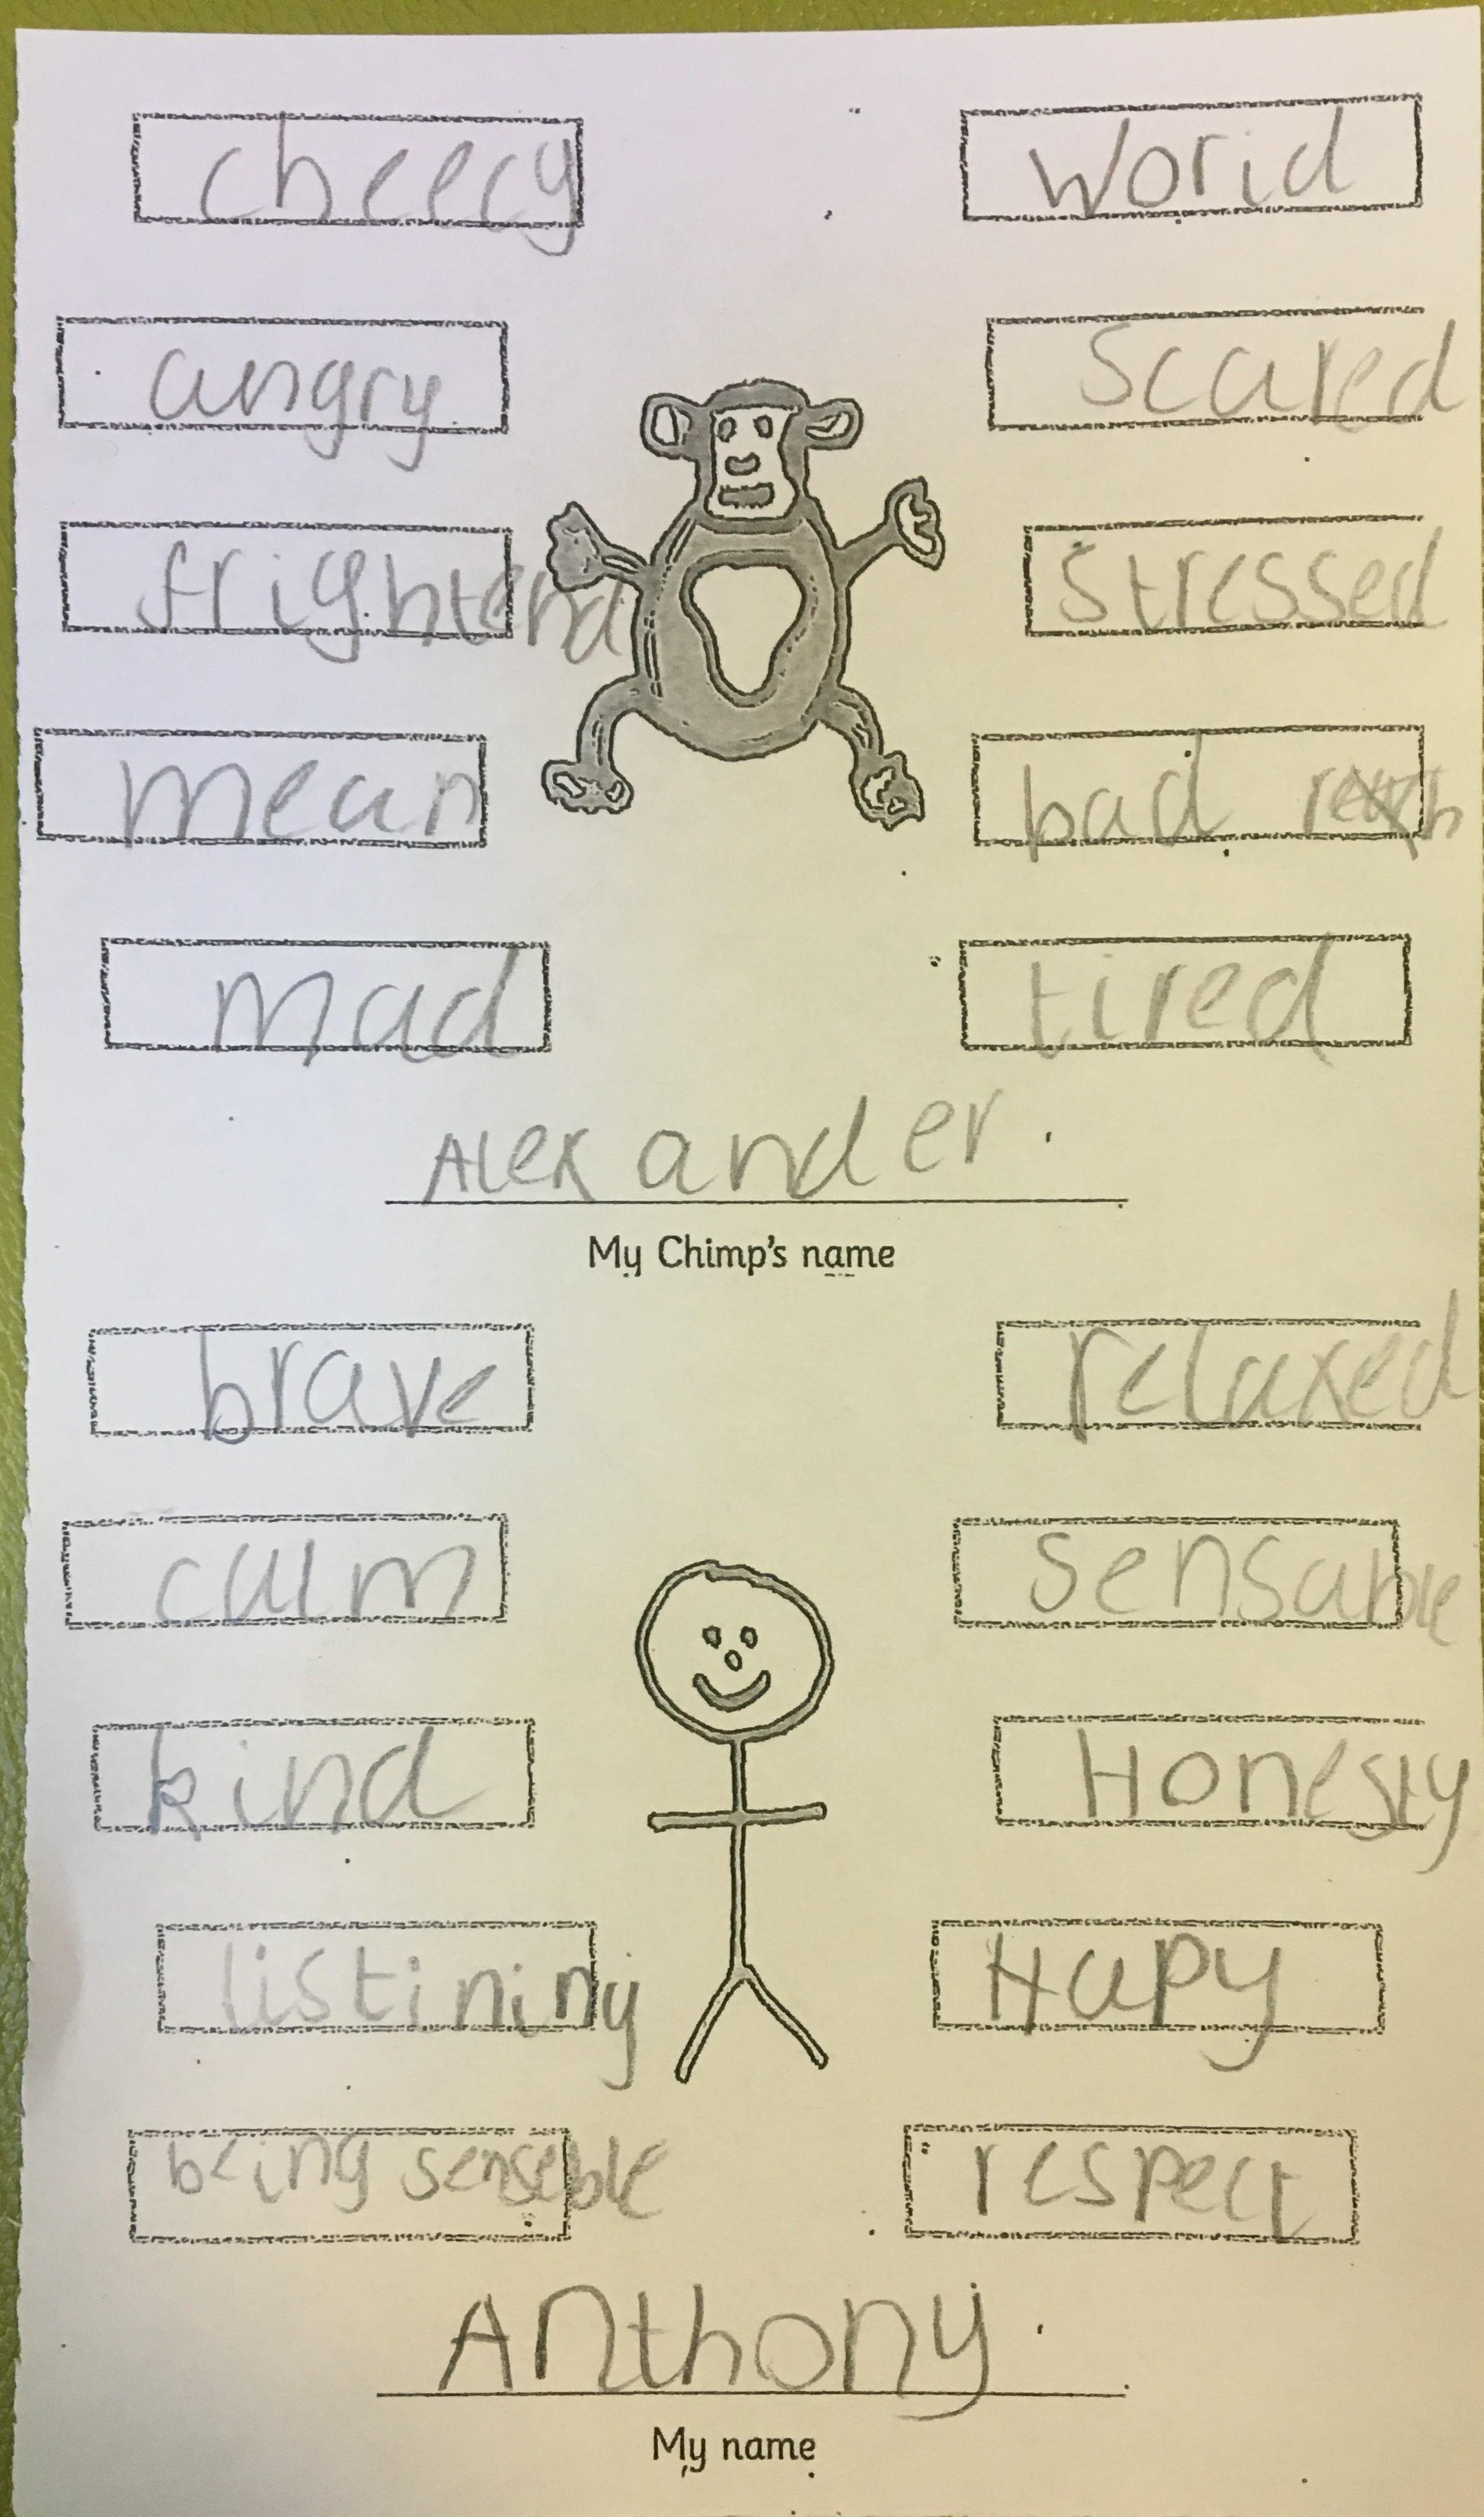 cheecy
worid
angry
scared
frightend
stressed
mean
bad
mad
tired
Alexander.
My Chimp's name
brave
relaxed
calm
sensable
kind
Honesty
listining
Hapy
being senseble
respect
Anthony.
My name